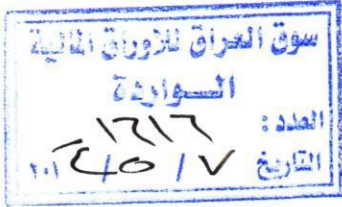 سوق العراق للاوراق المالية
الـــواردة
العدد : ١٦١٦
التاريخ ٧ / ٥ / ٢٠١٤